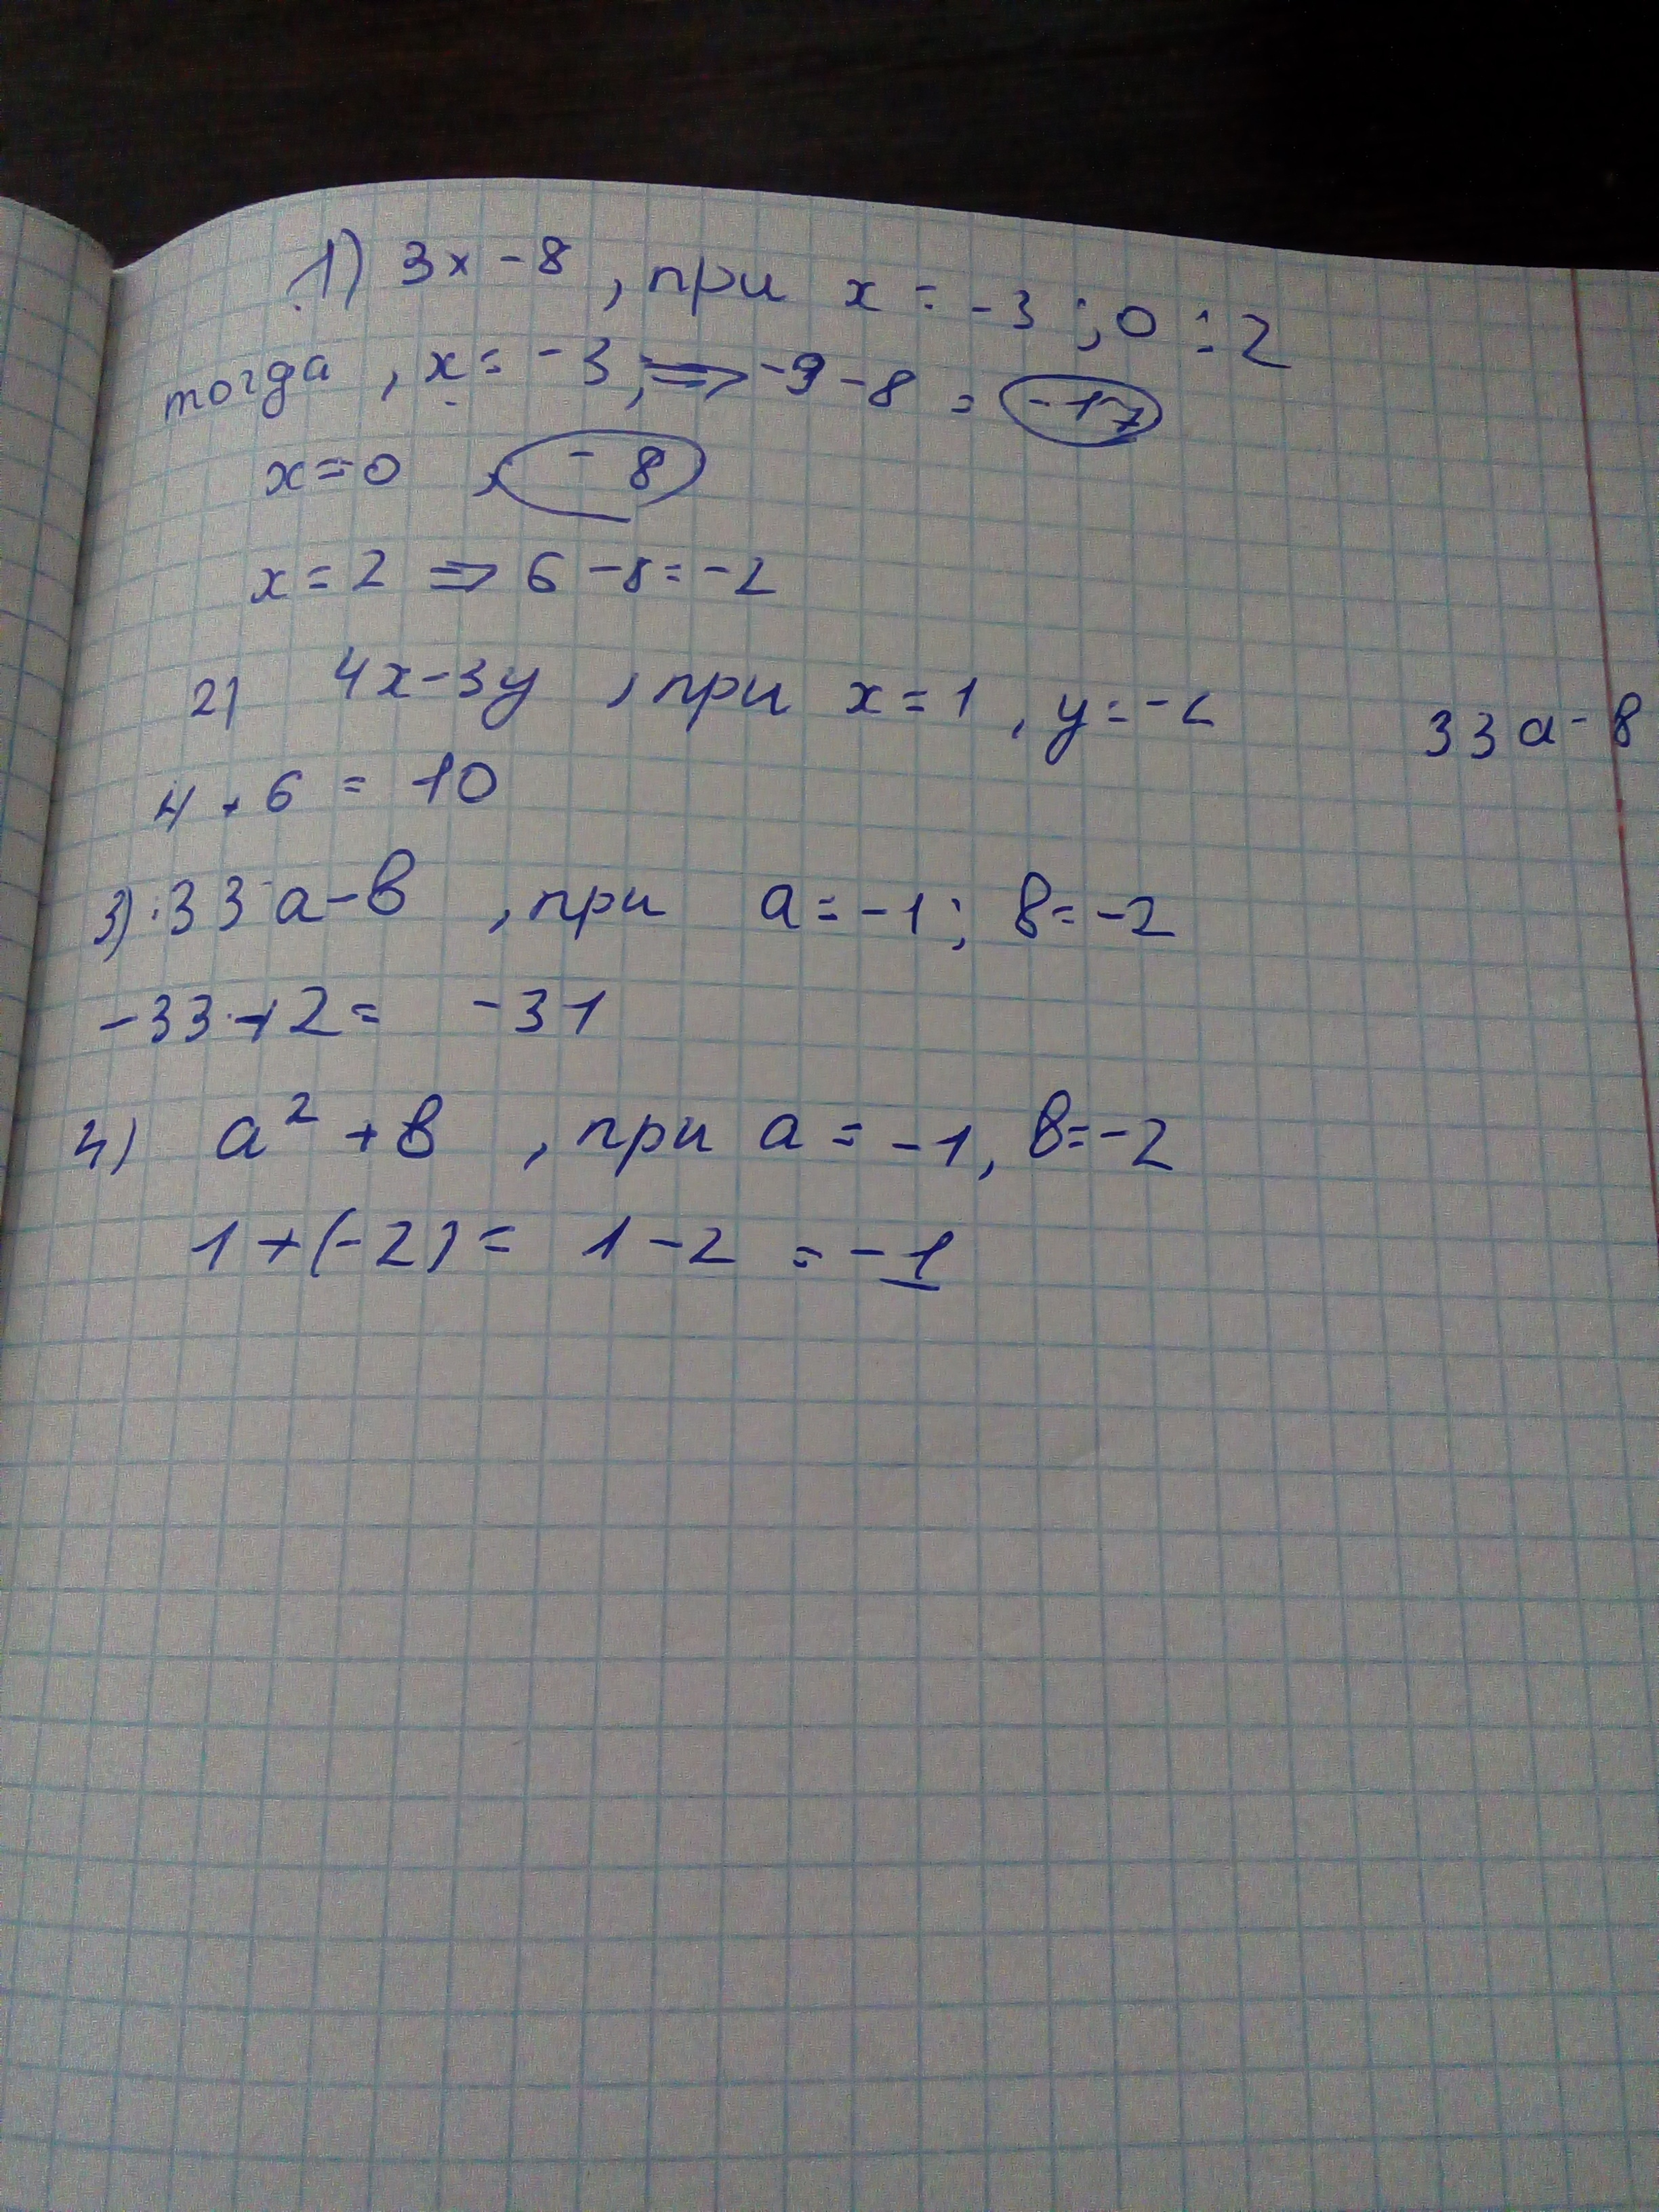 1) 3x - 8 , при x = -3 ; 0 ; 2
тогда , x = -3 ; => -9 - 8 = -17
x = 0 , -8
x = 2 => 6 - 8 = -2
2) 4x - 3y , при x = 1 , y = -2
33a - в
4 + 6 = 10
3) 33a - в , при a = -1 ; в = -2
-33 + 2 = -31
4) a² + в , при a = -1 , в = -2
1 + (-2) = 1 - 2 = -1